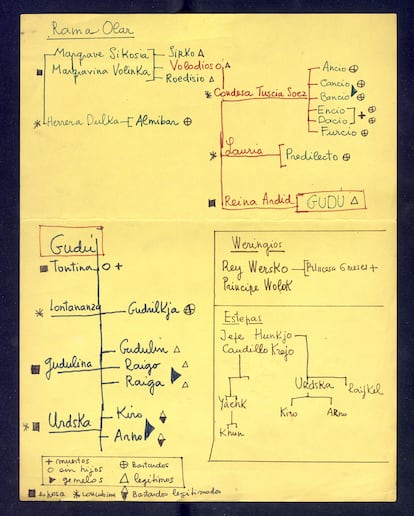 Rama Olar
Margrave Sikosia
Margravina Volinka
Sirko △
Volodioso
Roedisio △
Herrera Dulka
Almibar ⊕
* Condesa Tuscia Soez
Ancio ⊕
Cancio ⊕
Bancio ⊕
Encio
Dacio + ⊕
Furcio ⊕
* Lauria
Predilecto ⊕
Reina Ardid
GUDÚ △
Gudú
Tontina O +
* Lontananza
Gudrilkja ⊕
Gudulina
Gudulin △
Raigo △
Raiga △
* Urdska
Kiro
Arno
Weringios
Rey Wersko
Princesa Indra +
Principe Wolok
Estepas
Jefe Hunkjo
Caudillo Krejo
Yahek
Khun
Urdska
Kiro
Arno
Raijkel
+ muertos
O sin hijos
gemelos
⊕ Bastardos
△ legítimos
esposa * concubina
Bastardos legitimados